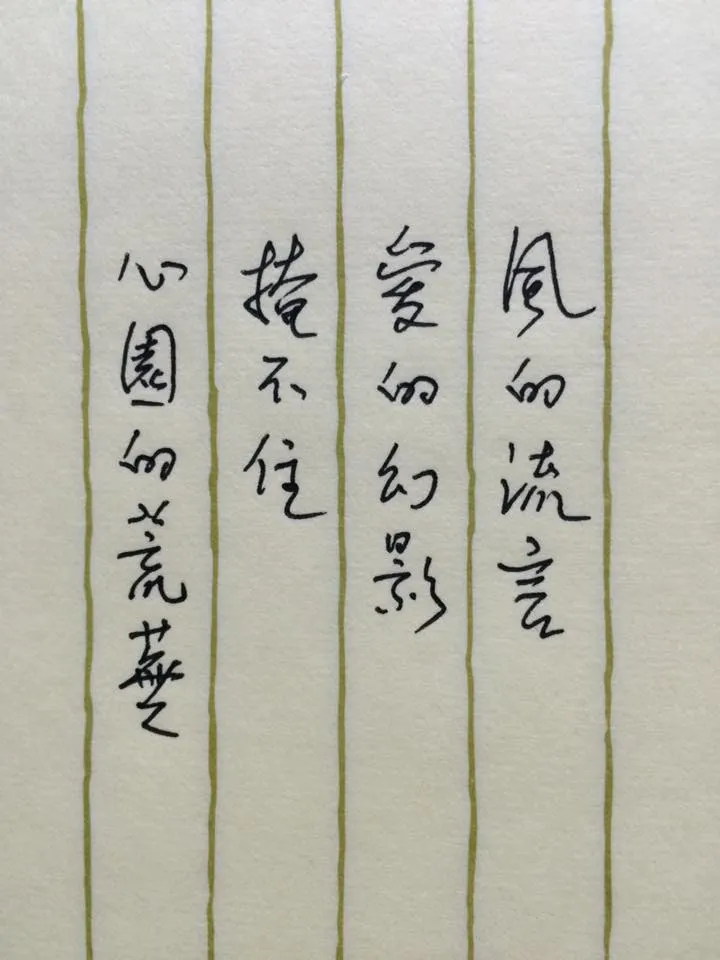 風的流言
愛的幻影
掩不住
心園的荒蕪